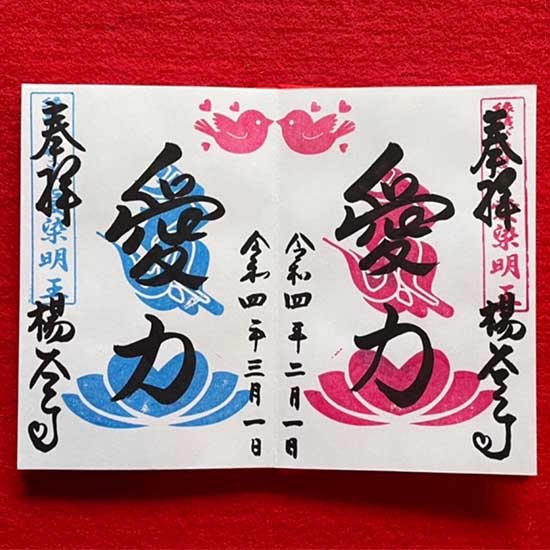 奉拝 楊谷寺
染明王
愛力
令和四年二月一日
令和四年三月一日
愛力
奉拝 楊谷寺
染明王